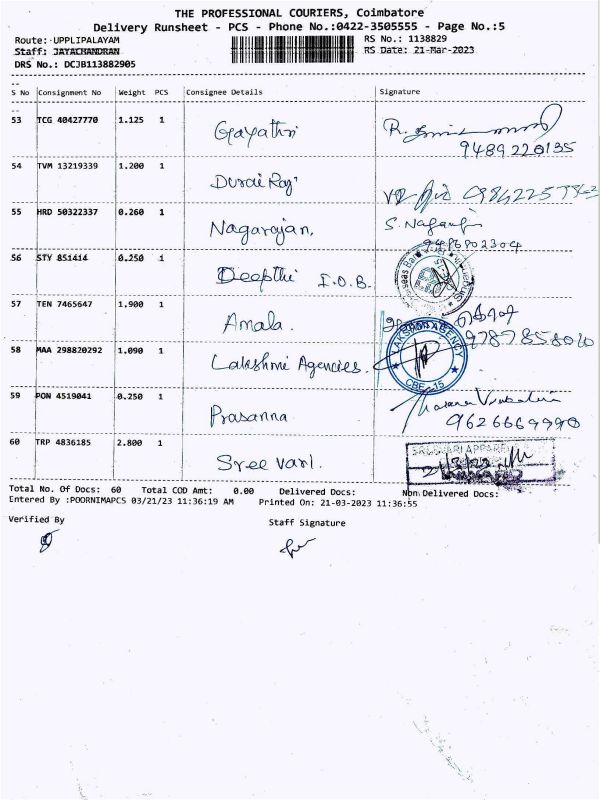 THE PROFESSIONAL COURIERS, Coimbatore
Delivery Runsheet - PCS - Phone No.:0422-3505555 - Page No.:5
Route: UPPLIPALAYAM RS No.: 1138829
Staff: JAYACHANDRAN RS Date: 21-Mar-2023
DRS No.: DCJB113882905
S No Consignment No Weight PCS Consignee Details Signature
53 TCG 40427770 1.125 1 Gayathri R.
9489220135
54 TVM 13219339 1.200 1 Durai Raj
55 HRD 50322337 0.260 1 Nagarajan, S. Nagaraj
9486802304
56 STY 851414 0.250 1 Deepthi I.O.B.
57 TEN 7465647 1.900 1 Amala.
58 MAA 298820292 1.090 1 Lakshmi Agencies. LAKSHMI AGENCY
CBE-15
59 PON 4519041 0.250 1 Prasanna
9626669990
60 TRP 4836185 2.800 1 Sree vari.
21/3/23
Total No. Of Docs: 60 Total COD Amt: 0.00 Delivered Docs: Non Delivered Docs:
Entered By :POORNIMAPCS 03/21/23 11:36:19 AM Printed On: 21-03-2023 11:36:55
Verified By Staff Signature